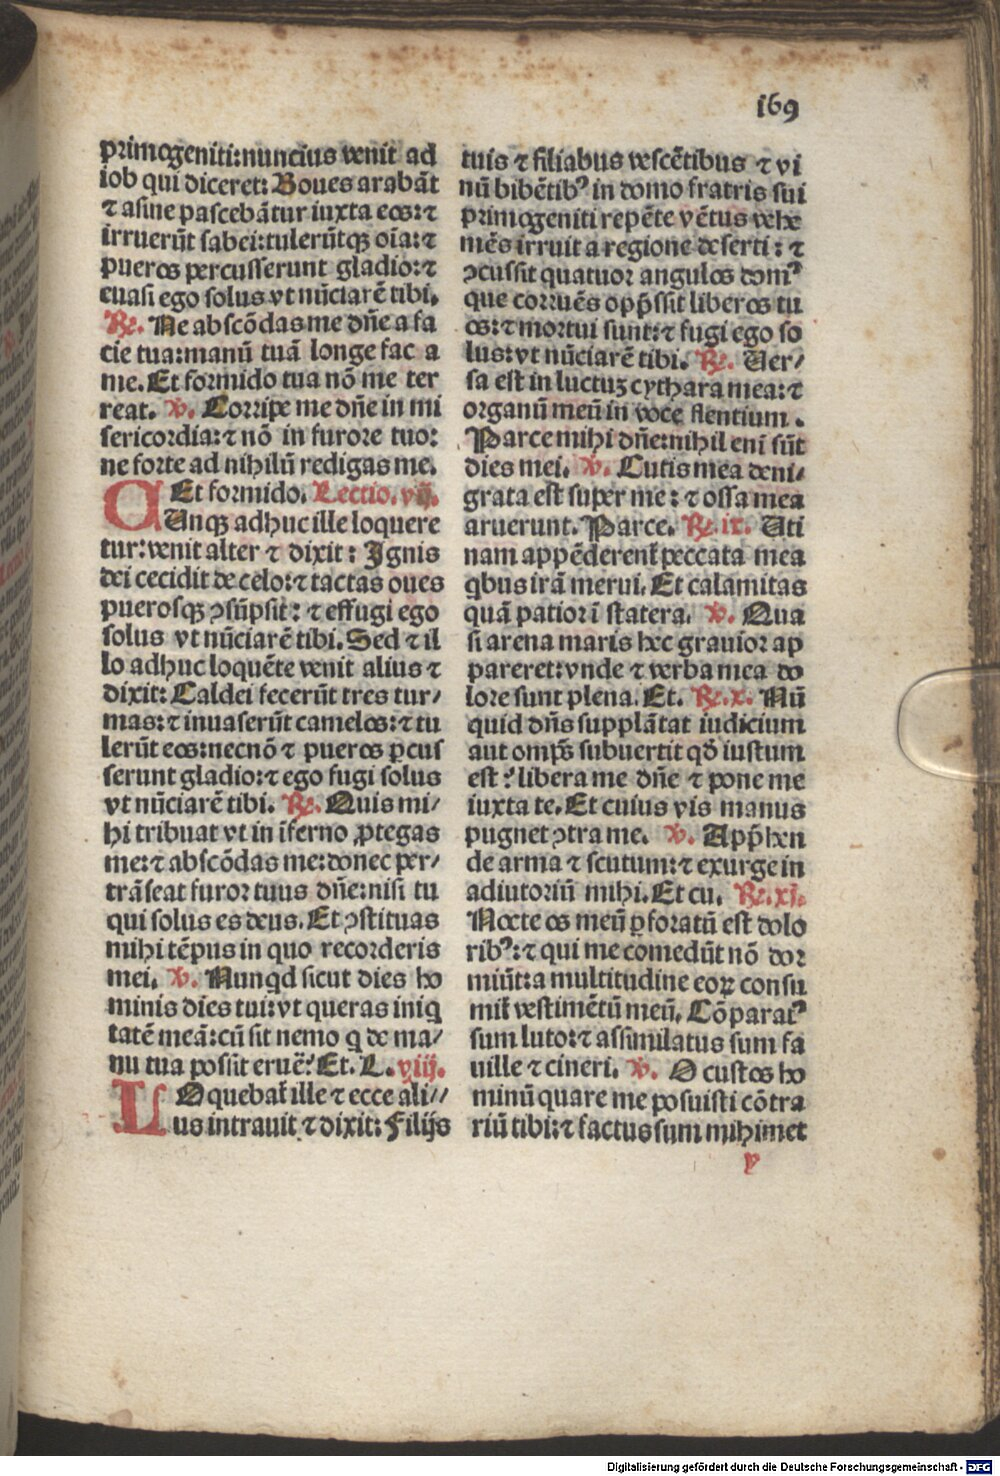 i69
primogeniti:nuncius venit ad
iob qui diceret: Boues arabāt
⁊ asine pascebātur iuxta eos:⁊
irruerūt sabei:tulerūtqꝫ oīa:⁊
pueros percusserunt gladio:⁊
euasi ego solus vt nūciarē tibi.
℟. Ne abscōdas me dn̄e a fa
cie tua:manū tuā longe fac a
me. Et formido tua nō me ter
reat. ℣. Corripe me dn̄e in mi
sericordia:⁊ nō in furore tuo:
ne forte ad nihilū redigas me.
Et formido. Lectio. vij.
CUnqꝫ adhuc ille loquere
tur:venit alter ⁊ dixit: Ignis
dei cecidit de celo:⁊ tactas oues
puerosqꝫ ꝯsūpsit: ⁊ effugi ego
solus vt nūciarē tibi. Sed ⁊ il
lo adhuc loquēte venit alius ⁊
dixit: Caldei fecerūt tres tur/
mas:⁊ inuaserūt camelos:⁊ tu
lerūt eos:necnō ⁊ pueros ꝑcus
serunt gladio:⁊ ego fugi solus
vt nūciarē tibi. ℟. Quis mi/
hi tribuat vt in īferno ꝓtegas
me:⁊ abscōdas me:donec per/
trāseat furor tuus dn̄e:nisi tu
qui solus es deus. Et ꝯstituas
mihi tēpus in quo recorderis
mei. ℣. Nunqd sicut dies ho
minis dies tui:vt queras iniq
tatē meā:cū sit nemo q de ma/
nu tua possit eruē? Et. L. viij.
LOquebat᷑ ille ⁊ ecce ali//
us intrauit ⁊ dixit: Filijs
tuis ⁊ filiabus vescētibus ⁊ vi
nū bibētibꝰ in domo fratris sui
primogeniti repēte vētus vehe
mēs irruit a regione deserti: ⁊
ꝯcussit quatuor angulos domꝰ
que corruēs opp̄ssit liberos tu
os:⁊ mortui sunt:⁊ fugi ego so
lus:vt nūciarē tibi. ℟. Uer/
sa est in luctuꝫ cythara mea:⁊
organū meū in voce flentium.
Parce mihi dn̄e:nihil enī sūt
dies mei. ℣. Cutis mea deni/
grata est super me: ⁊ ossa mea
aruerunt. Parce. ℟. ix. Uti
nam appēderent᷑ peccata mea
qbus irā merui. Et calamitas
quā patior ī statera. ℣. Qua
si arena maris hec grauior ap
pareret:vnde ⁊ verba mea do
lore sunt plena. Et. ℟. x. Nū
quid dn̄s supplātat iudicium
aut omp̄s subuertit qđ iustum
est? libera me dn̄e ⁊ pone me
iuxta te. Et cuius vis manus
pugnet ꝯtra me. ℣. App̄hen
de arma ⁊ scutum:⁊ exurge in
adiutoriū mihi. Et cu. ℟. xj.
Nocte os meū ꝑforatū est dolo
ribꝰ:⁊ qui me comedūt nō dor
miūt:a multitudine eoꝝ consu
mit᷑ vestimētū meū. Cōparatꝰ
sum luto:⁊ assimilatus sum fa
uille ⁊ cineri. ℣. O custos ho
minū quare me posuisti cōtra
riū tibi:⁊ factus sum mihimet
y
Digitalisierung gefördert durch die Deutsche Forschungsgemeinschaft - DFG